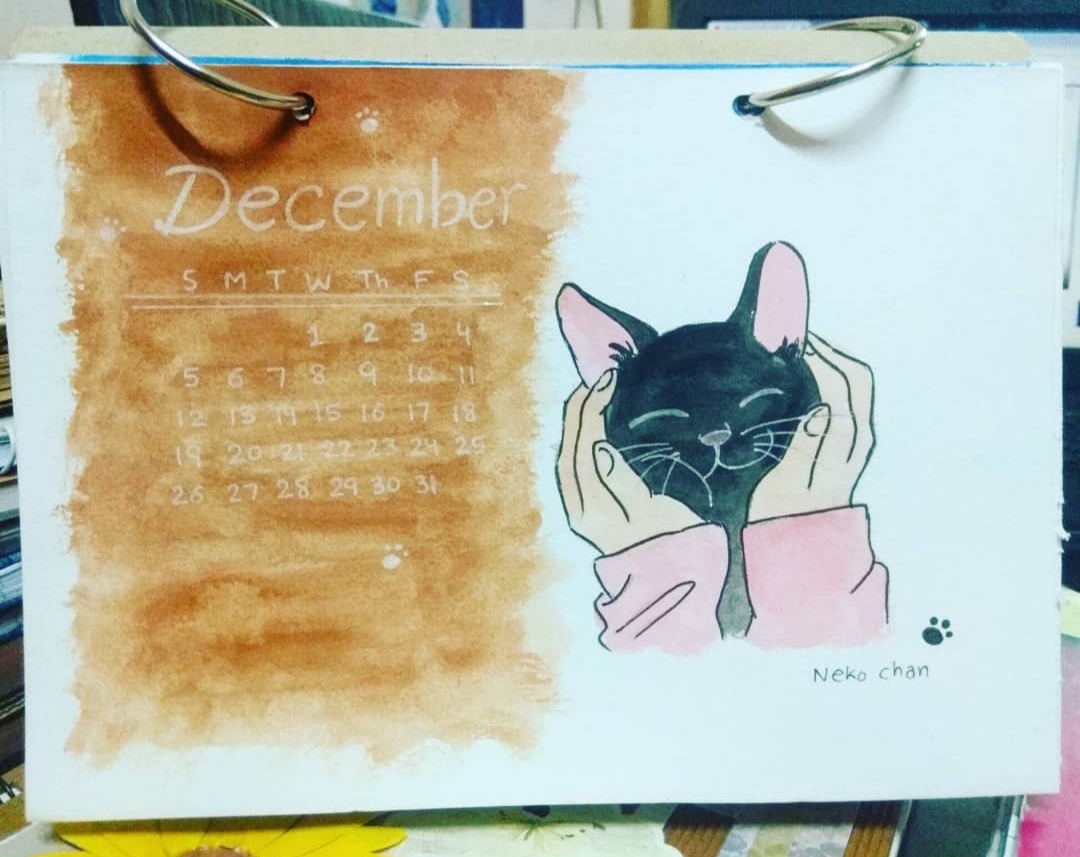 December
S M T W Th F S
1 2 3 4
5 6 7 8 9 10 11
12 13 14 15 16 17 18
19 20 21 22 23 24 25
26 27 28 29 30 31
Neko chan